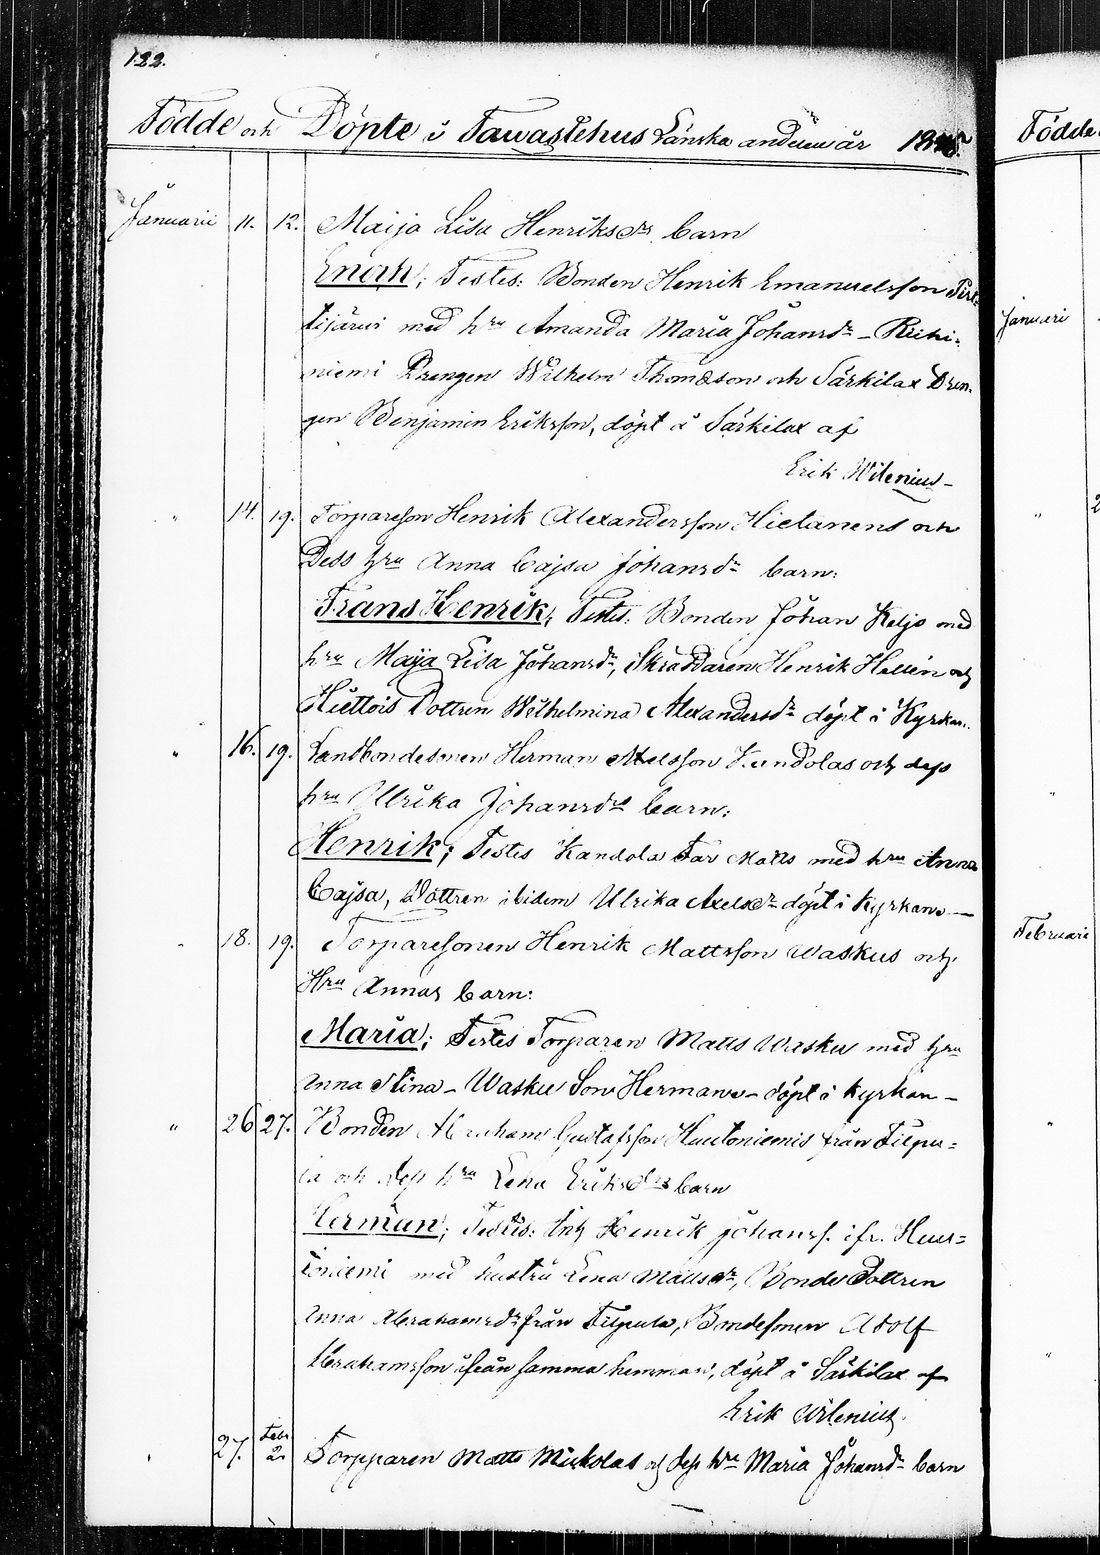 122.
Födde och Döpte i Tawastehus Länska andelen år 1845.
Födde
Januarii 11. 12. Maija Lisa Henriksdrs barn
Enoch; Testes: Bonden Henrik Emanuelsson
med hru Amanda Maria Johansdr
niemi Drengen Wilhelm Thomasson och Särkilax Dren-
gen Benjamin Eriksson, döpt å Särkilax af
Erik Wilenius
" 14. 19. Torpareson Henrik Alexandersson Hietanens och
Dess hru Anna Cajsa Johansdr barn:
Frans Henrik; Testes: Bonden Johan Keljo med
hru Maja Lisa Johansdr, Skräddaren Henrik Hellén och
Hiettois Dottren Wilhelmina Alexandersdr döpt i Kyrkan.
" 16. 19. Landbondesonen Herman Axelsson Kandolas och dess
hru Ulrika Johansdrs barn:
Henrik; Testes Kandola Far Matts med hru Anna
Cajsa, Dottren ibidem Ulrika Axelsdr döpt i Kyrkan
" 18. 19. Torparesonen Henrik Mattsson Waskus och
Hru Annas barn:
Maria; Testes Torparen Matts Wasku med hru
Anna Stina - Wasku Son Herman - döpt i Kyrkan -
" 26 27. Bonden Abraham Gustafsson Huutoniemis från Filpu-
la och dess hru Lena Eriksdrs barn
Herman; Testes: Henrik Johanss. ifr. Huu-
toniemi med hustru Lena Mattsdr, Bonde Dottren
Anna Abrahamsdr från Filpula, Bondesonen Adolf
Abrahamsson ifrån samma hemman, döpt å Särkilax af
Erik Wilenius.
" 27. Febr. 2. Torpparen Matts Mickolas och dess hru Maria Johansdr barn
Januari
Februari